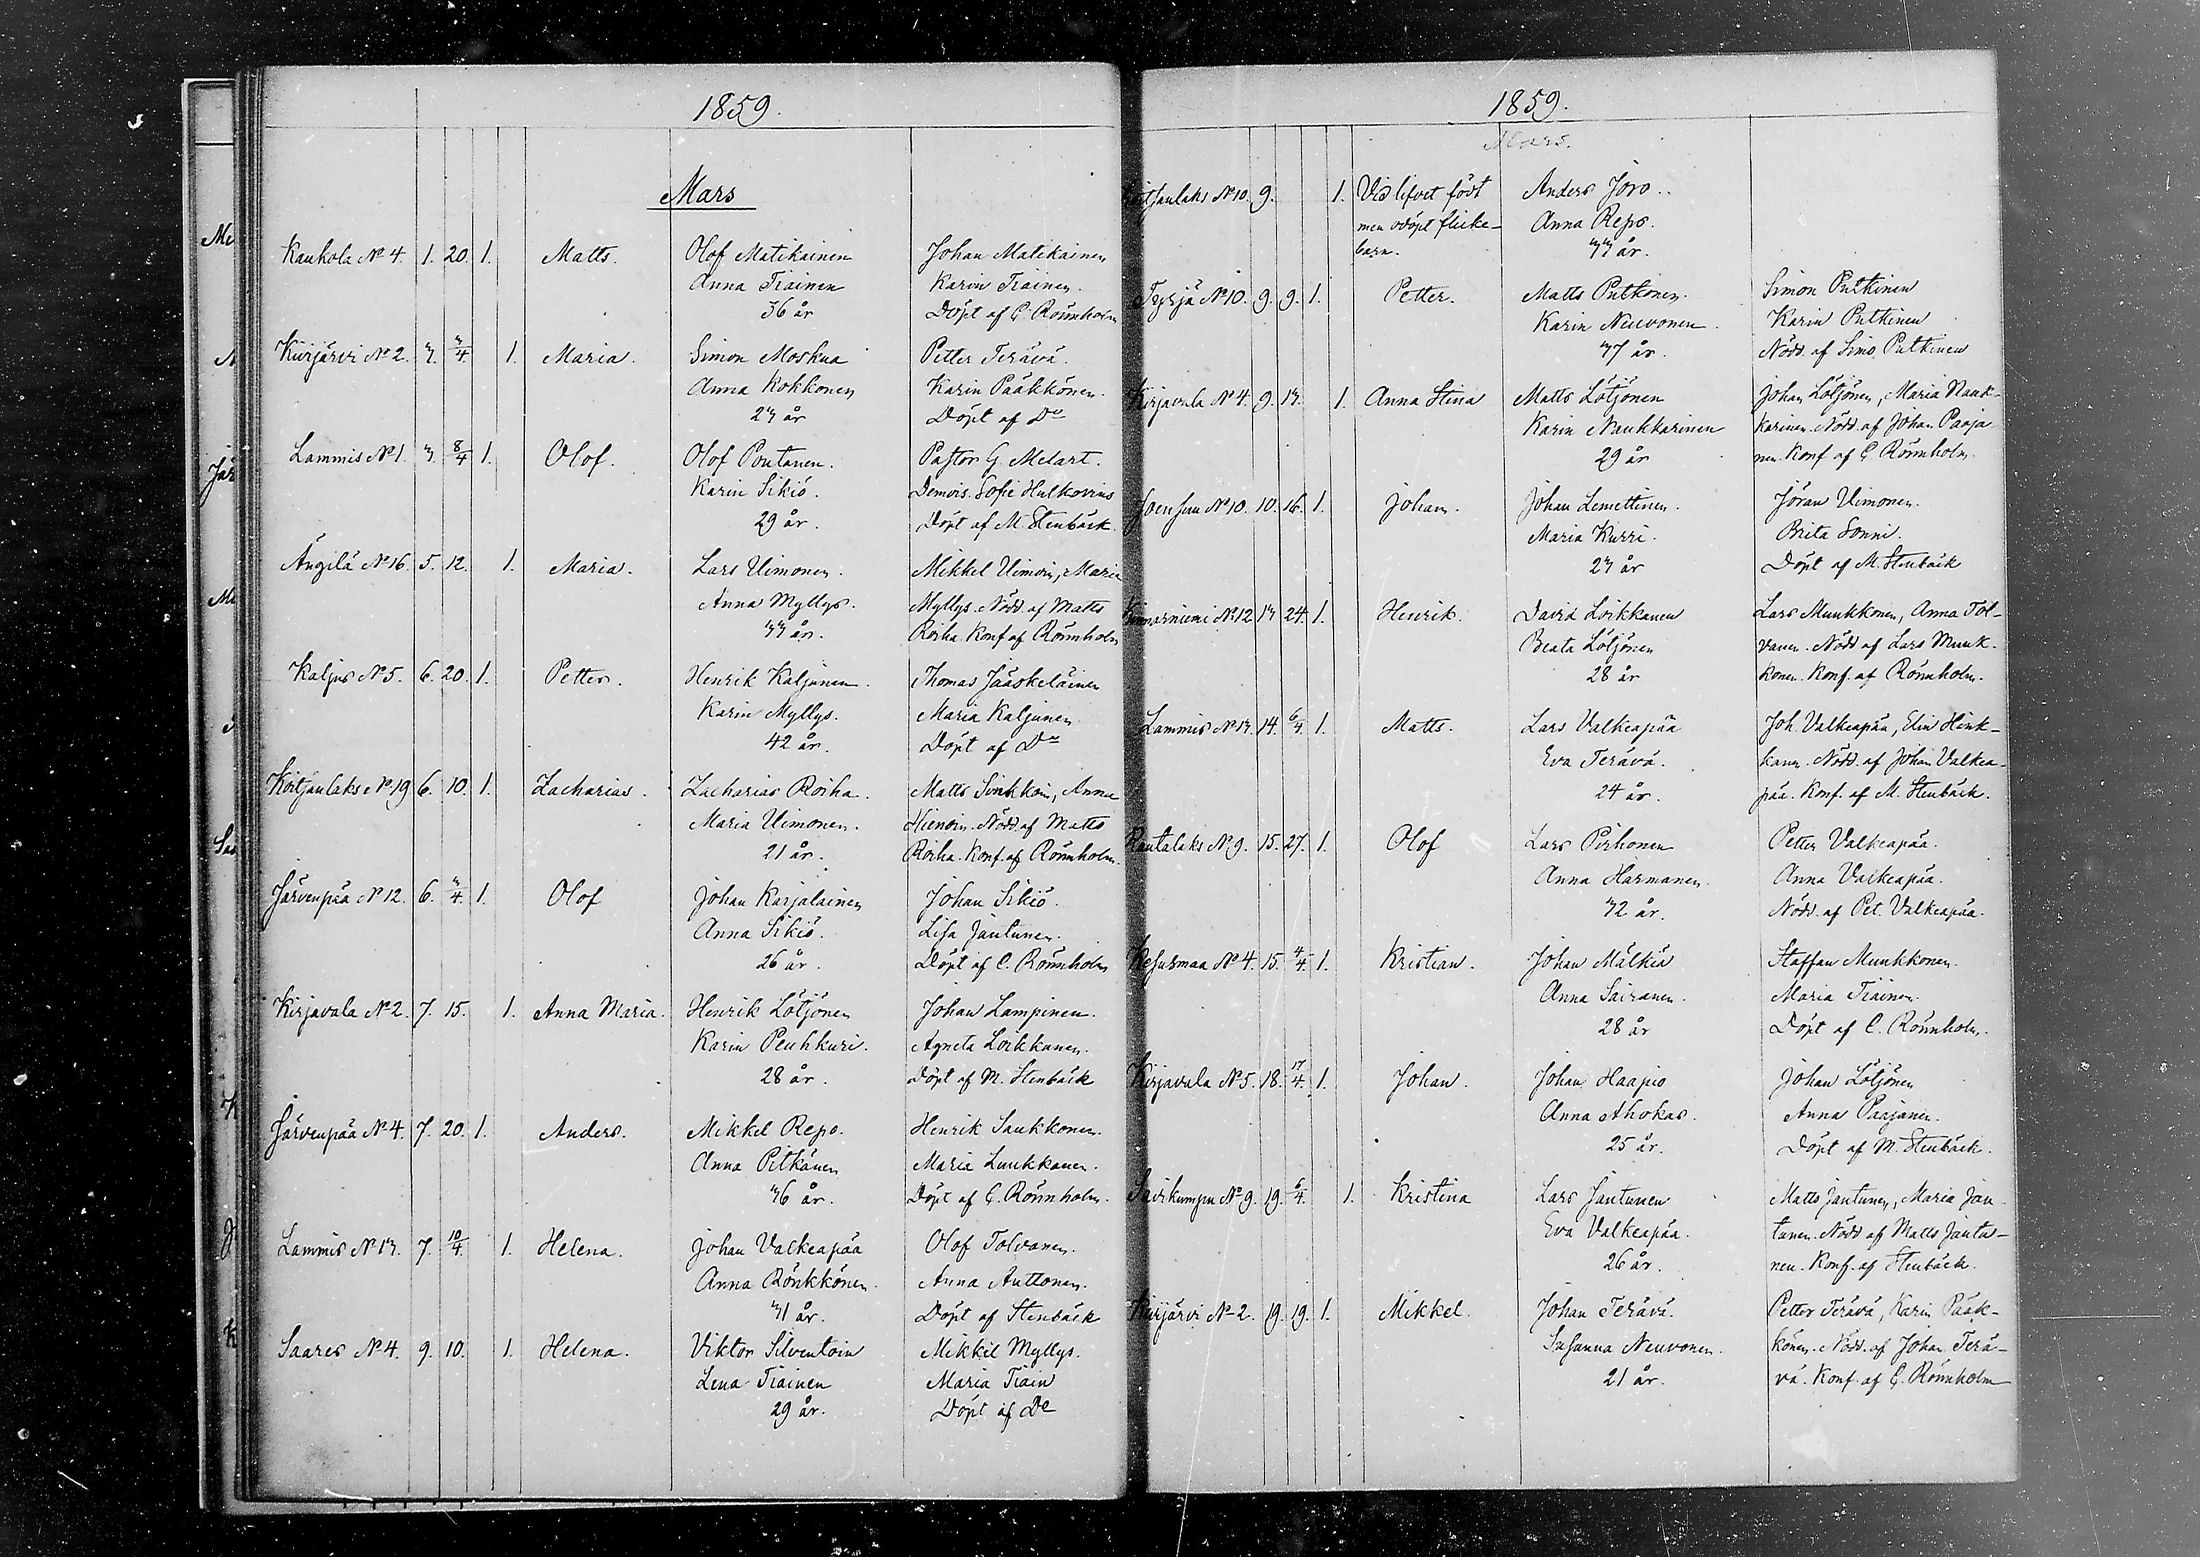 1859.
Mars
Kankola No 4. 1. 20. 1. Matts. Olof Matikainen Johan Matikainen
Anna Tiainen Karin Tiainen.
36 år Döpt af C. Rönnholm
Kurjärvi No 2. 3. 3/4 1. Maria. Simon Moskua Petter Terävä.
Anna Kokkonen Karin Pääkkönen.
23 år Döpt af Do
Lammis No 1. 3. 8/4 1. Olof. Olof Pontanen. Pastor G. Melart.
Karin Sikiö. Demois. Sofie Hulkovius
29 år. Döpt af M. Stenbäck.
Ängilä No 16. 5. 12. 1. Maria. Lars Uimonen. Mikkel Uimoin, Maria
Anna Myllys. Myllys. Nödd. af Matts
33 år. Roiha Konf af Rönnholm
Kaljus No 5. 6. 20. 1. Petter. Henrik Kaljunen. Thomas Jääskeläinen
Karin Myllys. Maria Kaljunen
42 år. Döpt af Do
Koitsanlaks No 19 6. 10. 1. Zacharias. Zacharias Roiha. Matts Sinkkoin, Anna
Maria Uimonen. Hienoin. Nödd. af Matts
21 år. Roiha. Konf. af Rönnholm.
Järvenpää No 12. 6. 3/4. 1. Olof Johan Karjalainen Johan Sikiö.
Anna Sikiö. Lisa Jantunen.
26 år. Döpt af C. Rönnholm
Kirjavala No 2. 7. 15. 1. Anna Maria. Henrik Lötjönen Johan Lampinen.
Karin Peuhkuri. Agneta Loikkanen.
28 år. Döpt af M. Stenbäck
Järvenpää No 4. 7. 20. 1. Anders. Mikkel Repo. Henrik Saukkonen.
Anna Pitkänen Maria Luukkanen.
36 år. Döpt af C. Rönnholm.
Lammis No 13. 7. 10/4. 1. Helena. Johan Valkeapää Olof Tolvanen.
Anna Rönkkönen. Anna Auttonen.
31 år. Döpt af Stenbäck
Saares No 4. 9. 10. 1. Helena. Viktor Silventoin Mikkil Myllys.
Lena Tiainen Maria Tiain
29 år. Döpt af Do
1859.
Mars.
Koitsanlaks No 10. 9. 1. Vid lifvet född Anders Joro..
men odöpt flicke- Anna Repo.
barn. 33 år.
Tyrjä No 10. 9. 9. 1. Petter. Matts Putkonen. Simon Putkinen
Karin Neuvonen. Karin Putkinen
37 år. Nödd. af Simo Putkinen
Kirjavala No 4. 9. 13. 1. Anna Stina Matts Lötjönen Johan Lötjönen, Maria Nauk-
Karin Naukkarinen karinen. Nödd. af Johan Paaja
29 år nen. Konf af C Rönnholm.
Joensuu No 10. 10. 16. 1. Johan. Johan Lemettinen. Jöran Uimonen.
Maria Kurri. Brita Sonni.
23 år Döpt af M. Stenbäck
Kinnarniemi No 12 13 24. 1. Henrik. David Loikkanen Lars Munkkonen, Anna Tol-
Beata Lötjönen vanen. Nödd af Lars Munk-
28 år konen. Konf. af Rönnholm.
Lammis No 13. 14. 6/4. 1. Matts. Lars Valkeapää Joh. Valkeapää, Elin Hink-
Eva Terävä. kanen. Nödd. af Johan Valkea-
24 år. pää. Konf. af M. Stenbäck.
Rautalaks No 9. 15. 27. 1. Olof Lars Pirhonen Petter Valkeapää.
Anna Harmanen. Anna Valkeapää.
32 år. Nödd. af Pet. Valkeapää.
Kesusmaa No 4. 15. 4/4. 1. Kristian. Johan Mälkiä Staffan Munkkonen.
Anna Sairanen. Maria Tiainen.
28 år Döpt af C. Rönnholm.
Kirjavala No 5. 18. 17/4. 1. Johan. Johan Haapio Johan Lötjönen
Anna Ahokas. Anna Paajanen.
25 år. Döpt af M. Stenbäck.
Savikumpu No 9. 19. 6/4. 1. Kristina Lars Jantunen Matts Jantunen, Maria Jan-
Eva Valkeapää. tunen. Nödd af Matts Jantu-
26 år. nen. Konf. af Stenbäck.
Kurjärvi No 2. 19. 19. 1. Mikkel. Johan Terävä. Petter Terävä, Karin Pääk-
Susanna Neuvonen. könen. Nödd. af Johan Terä-
21 år. vä. Konf. af C. Rönnholm